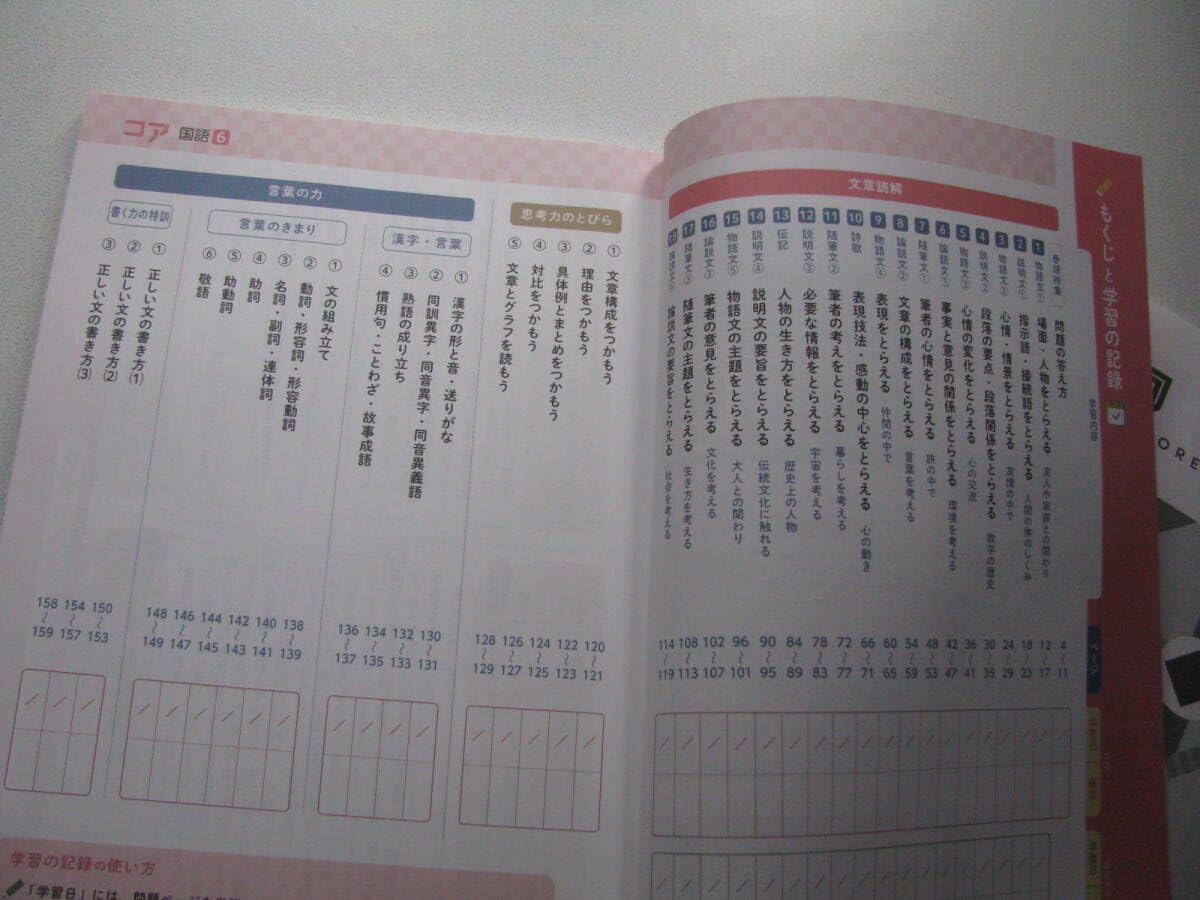 もくじと学習の記録
学習内容
ページ
学習日
文章読解
巻頭特集 問題の答え方 4~11
1 物語文① 場面・人物をとらえる 友人や家族との関わり 12~17
2 説明文① 指示語・接続語をとらえる 人間の体のしくみ 18~23
3 物語文② 心情・情景をとらえる 友情の中で 24~29
4 説明文② 段落の要点・段落関係をとらえる 数字の歴史 30~35
5 物語文③ 心情の変化をとらえる 心の交流 36~41
6 論説文① 事実と意見の関係をとらえる 環境を考える 42~47
7 随筆文① 筆者の心情をとらえる 旅の中で 48~53
8 論説文② 文章の構成をとらえる 言葉を考える 54~59
9 物語文④ 表現をとらえる 仲間の中で 60~65
10 詩歌 表現技法・感動の中心をとらえる 心の動き 66~71
11 随筆文② 筆者の考えをとらえる 暮らしを考える 72~77
12 説明文③ 必要な情報をとらえる 宇宙を考える 78~83
13 伝記 人物の生き方をとらえる 歴史上の人物 84~89
14 説明文④ 説明文の要旨をとらえる 伝統文化に触れる 90~95
15 物語文⑤ 物語文の主題をとらえる 大人との関わり 96~101
16 論説文③ 筆者の意見をとらえる 文化を考える 102~107
17 随筆文③ 随筆文の主題をとらえる 生き方を考える 108~113
18 論説文④ 論説文の要旨をとらえる 社会を考える 114~119
コア 国語 6
思考力のとびら
① 文章構成をつかもう 120~121
② 理由をつかもう 122~123
③ 具体例とまとめをつかもう 124~125
④ 対比をつかもう 126~127
⑤ 文章とグラフを読もう 128~129
言葉の力
漢字・言葉
① 漢字の形と音・送りがな 130~131
② 同訓異字・同音異字・同音異義語 132~133
③ 熟語の成り立ち 134~135
④ 慣用句・ことわざ・故事成語 136~137
言葉のきまり
① 文の組み立て 138~139
② 動詞・形容詞・形容動詞 140~141
③ 名詞・副詞・連体詞 142~143
④ 助詞 144~145
⑤ 助動詞 146~147
⑥ 敬語 148~149
書く力の特訓
① 正しい文の書き方(1) 150~153
② 正しい文の書き方(2) 154~157
③ 正しい文の書き方(3) 158~159
学習の記録の使い方
「学習日」には、問題ページを学習
学習日
ORE